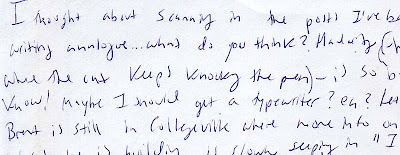 I thought about scanning in the posts I've be
writing analogue...what do you think? Madness (-
where the cat keeps knocking the pen)- is so b
know! maybe I should get a typewriter? eh? Let
Brent is still in Collegeville where move into on
is building slowly seeping in "I